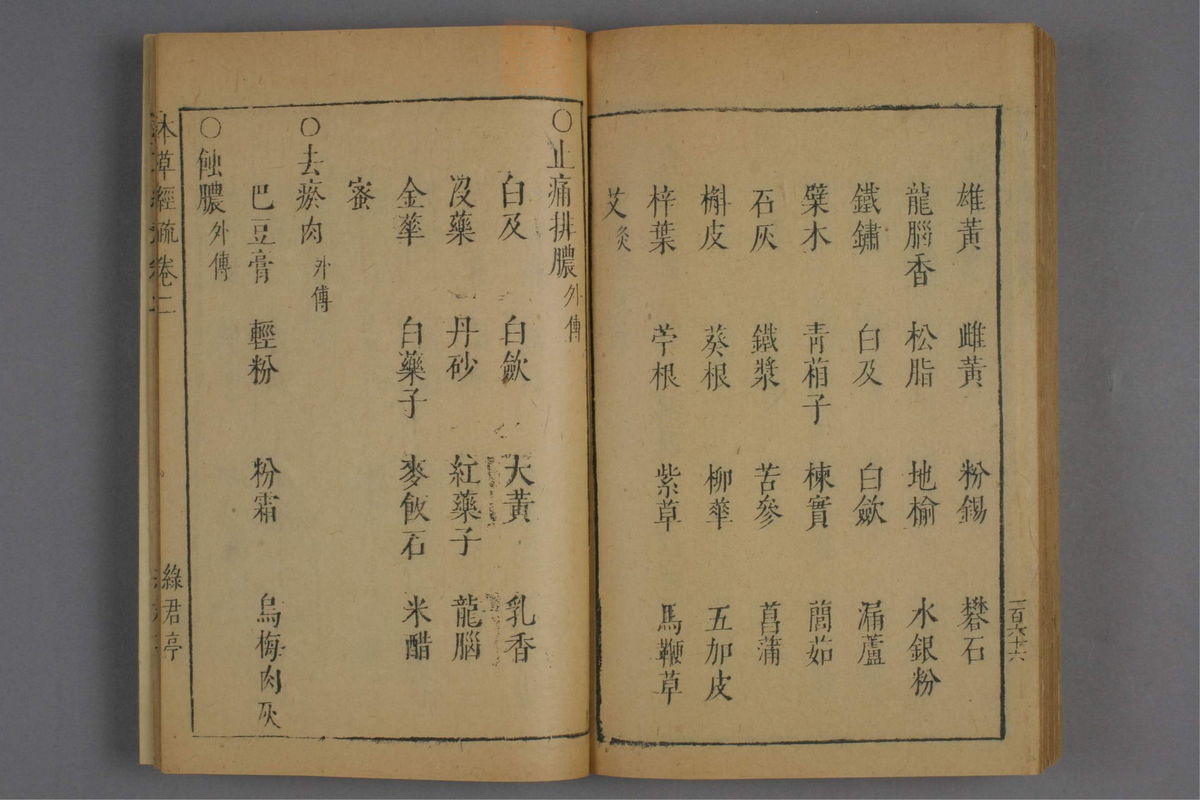 雄黃 雌黃 粉錫 礬石
龍腦香 松脂 地榆 水銀粉
鐵鏽 白及 白斂 漏蘆
檗木 青葙子 楝實 䕡茹
石灰 鐵漿 苦參 菖蒲
槲皮 葵根 柳華 五加皮
梓葉 苧根 紫草 馬鞭草
艾灸
一百六十六
○止痛排膿外傅
白及 白斂 大黃 乳香
沒藥 丹砂 紅藥子 龍腦
金華 白藥子 麥飯石 米醋
蜜
○去瘀肉外傅
巴豆膏 輕粉 粉霜 烏梅肉灰
○蝕膿外傅
本草經疏卷二
綠君亭